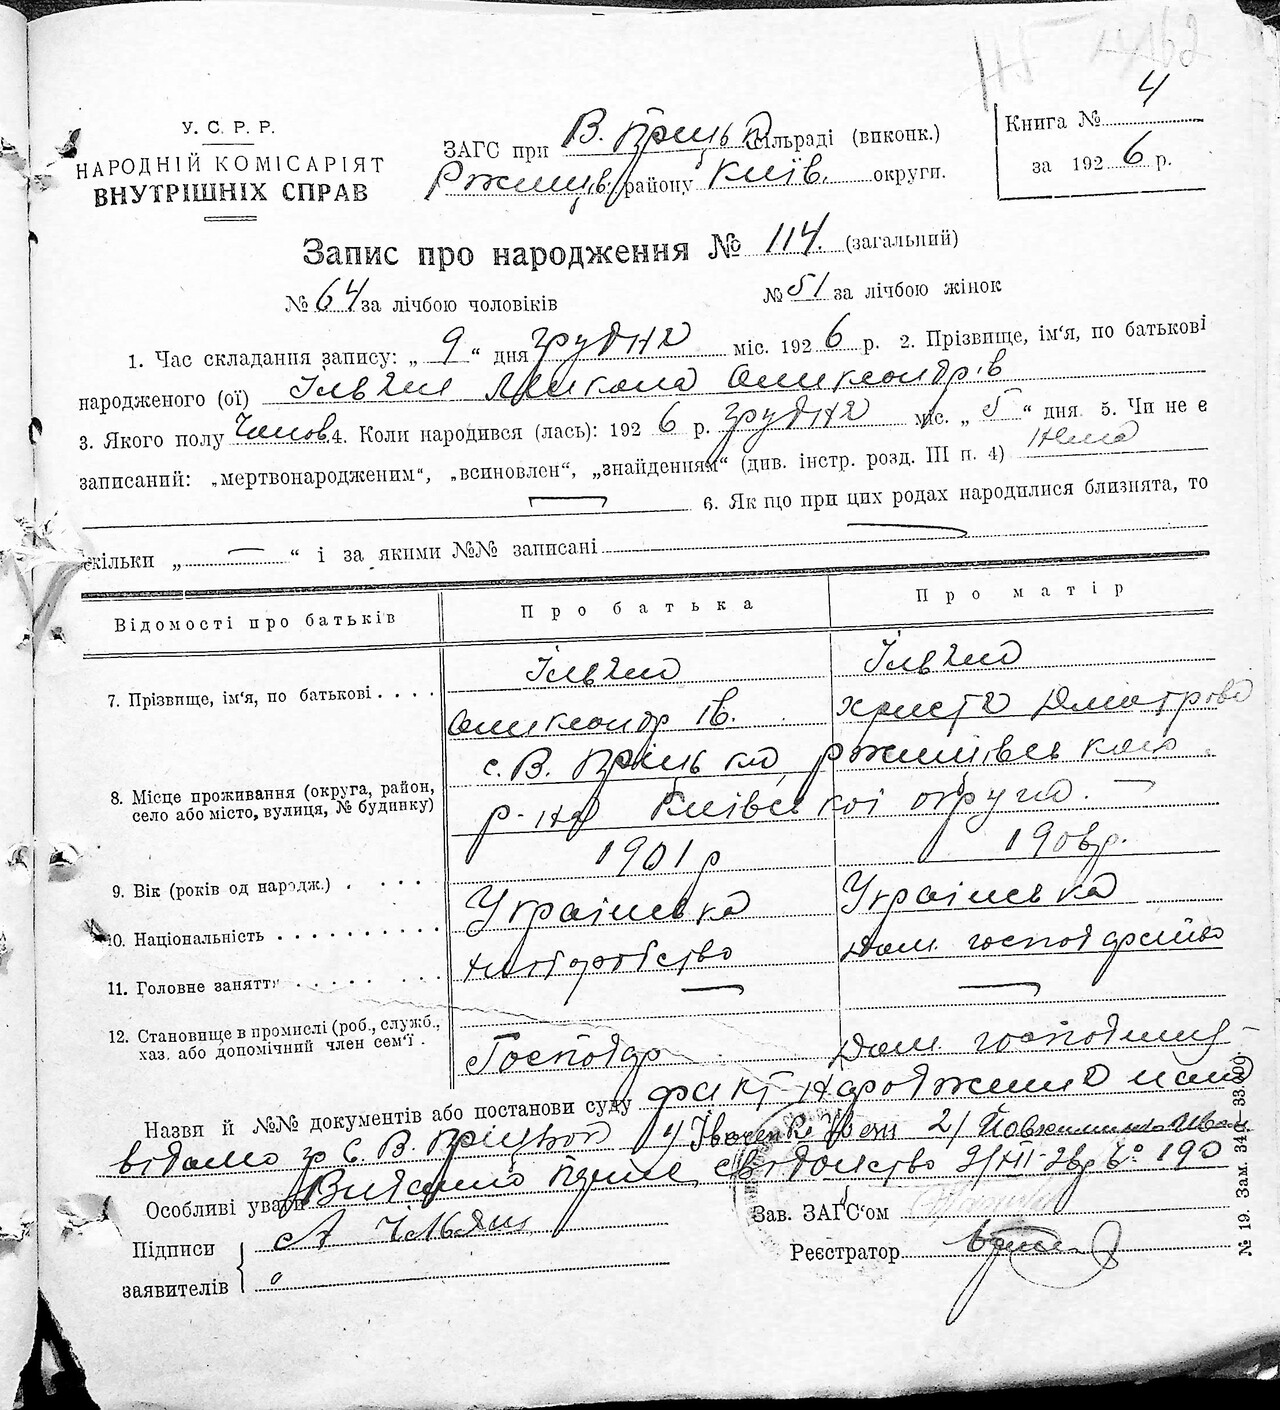 У. С. Р. Р.
НАРОДНІЙ КОМІСАРІЯТ
ВНУТРІШНІХ СПРАВ
ЗАГС при В. Кріцьк. сільраді (виконк.)
Ржищів. району Київ. округи.
Книга № 4
за 1926 р.
Запис про народження № 114. (загальний)
№ 64 за лічбою чоловіків № 51 за лічбою жінок
1. Час складання запису: „ 9 “ дня грудня міс. 1926 р. 2. Прізвище, ім‘я, по батькові
народженого (ої) Ільчин Микола Олександрів
3. Якого полу Чолов. 4. Коли народився (лась): 1926 р. грудня міс. „ 5 “ дня 5. Чи не є
записаний: „мертвонародженим“, „всиновлен“, „знайденням“ (див. інстр. розд. III п. 4) Нема
6. Як що при цих родах народилися близнята, то
скільки „ — “ і за якими №№ записані
Відомості про батьків Про батька Про матір
7. Прізвище, ім‘я, по батькові . . . . Ільчин Ільчина
Олександр Ів. Христя Дмитрова
8. Місце проживання (округа, район, село або місто, вулиця, № будинку) с. В. Кріцька, Ржищівського
р-на Київської округи. —
9. Вік (років од народж.) . . . . 1901 р 1906 р.
10. Національність . . . . . . . . . . Українська Українська
11. Головне заняття . . . . . . . . Хліборобство Дом. господарство
12. Становище в промислі (роб., служб., хаз. або допомічний член сем‘ї . Господар Дом. господиня
Назви й №№ документів або постанови суду факт народження
відомо гр. с. В. Кріцької 1/ 2/
Особливі уваги Видано свідоцтво 190
Підписи
заявителів А
Зав. ЗАГС‘ом
Реєстратор
№ 19. Зам. 340—33000